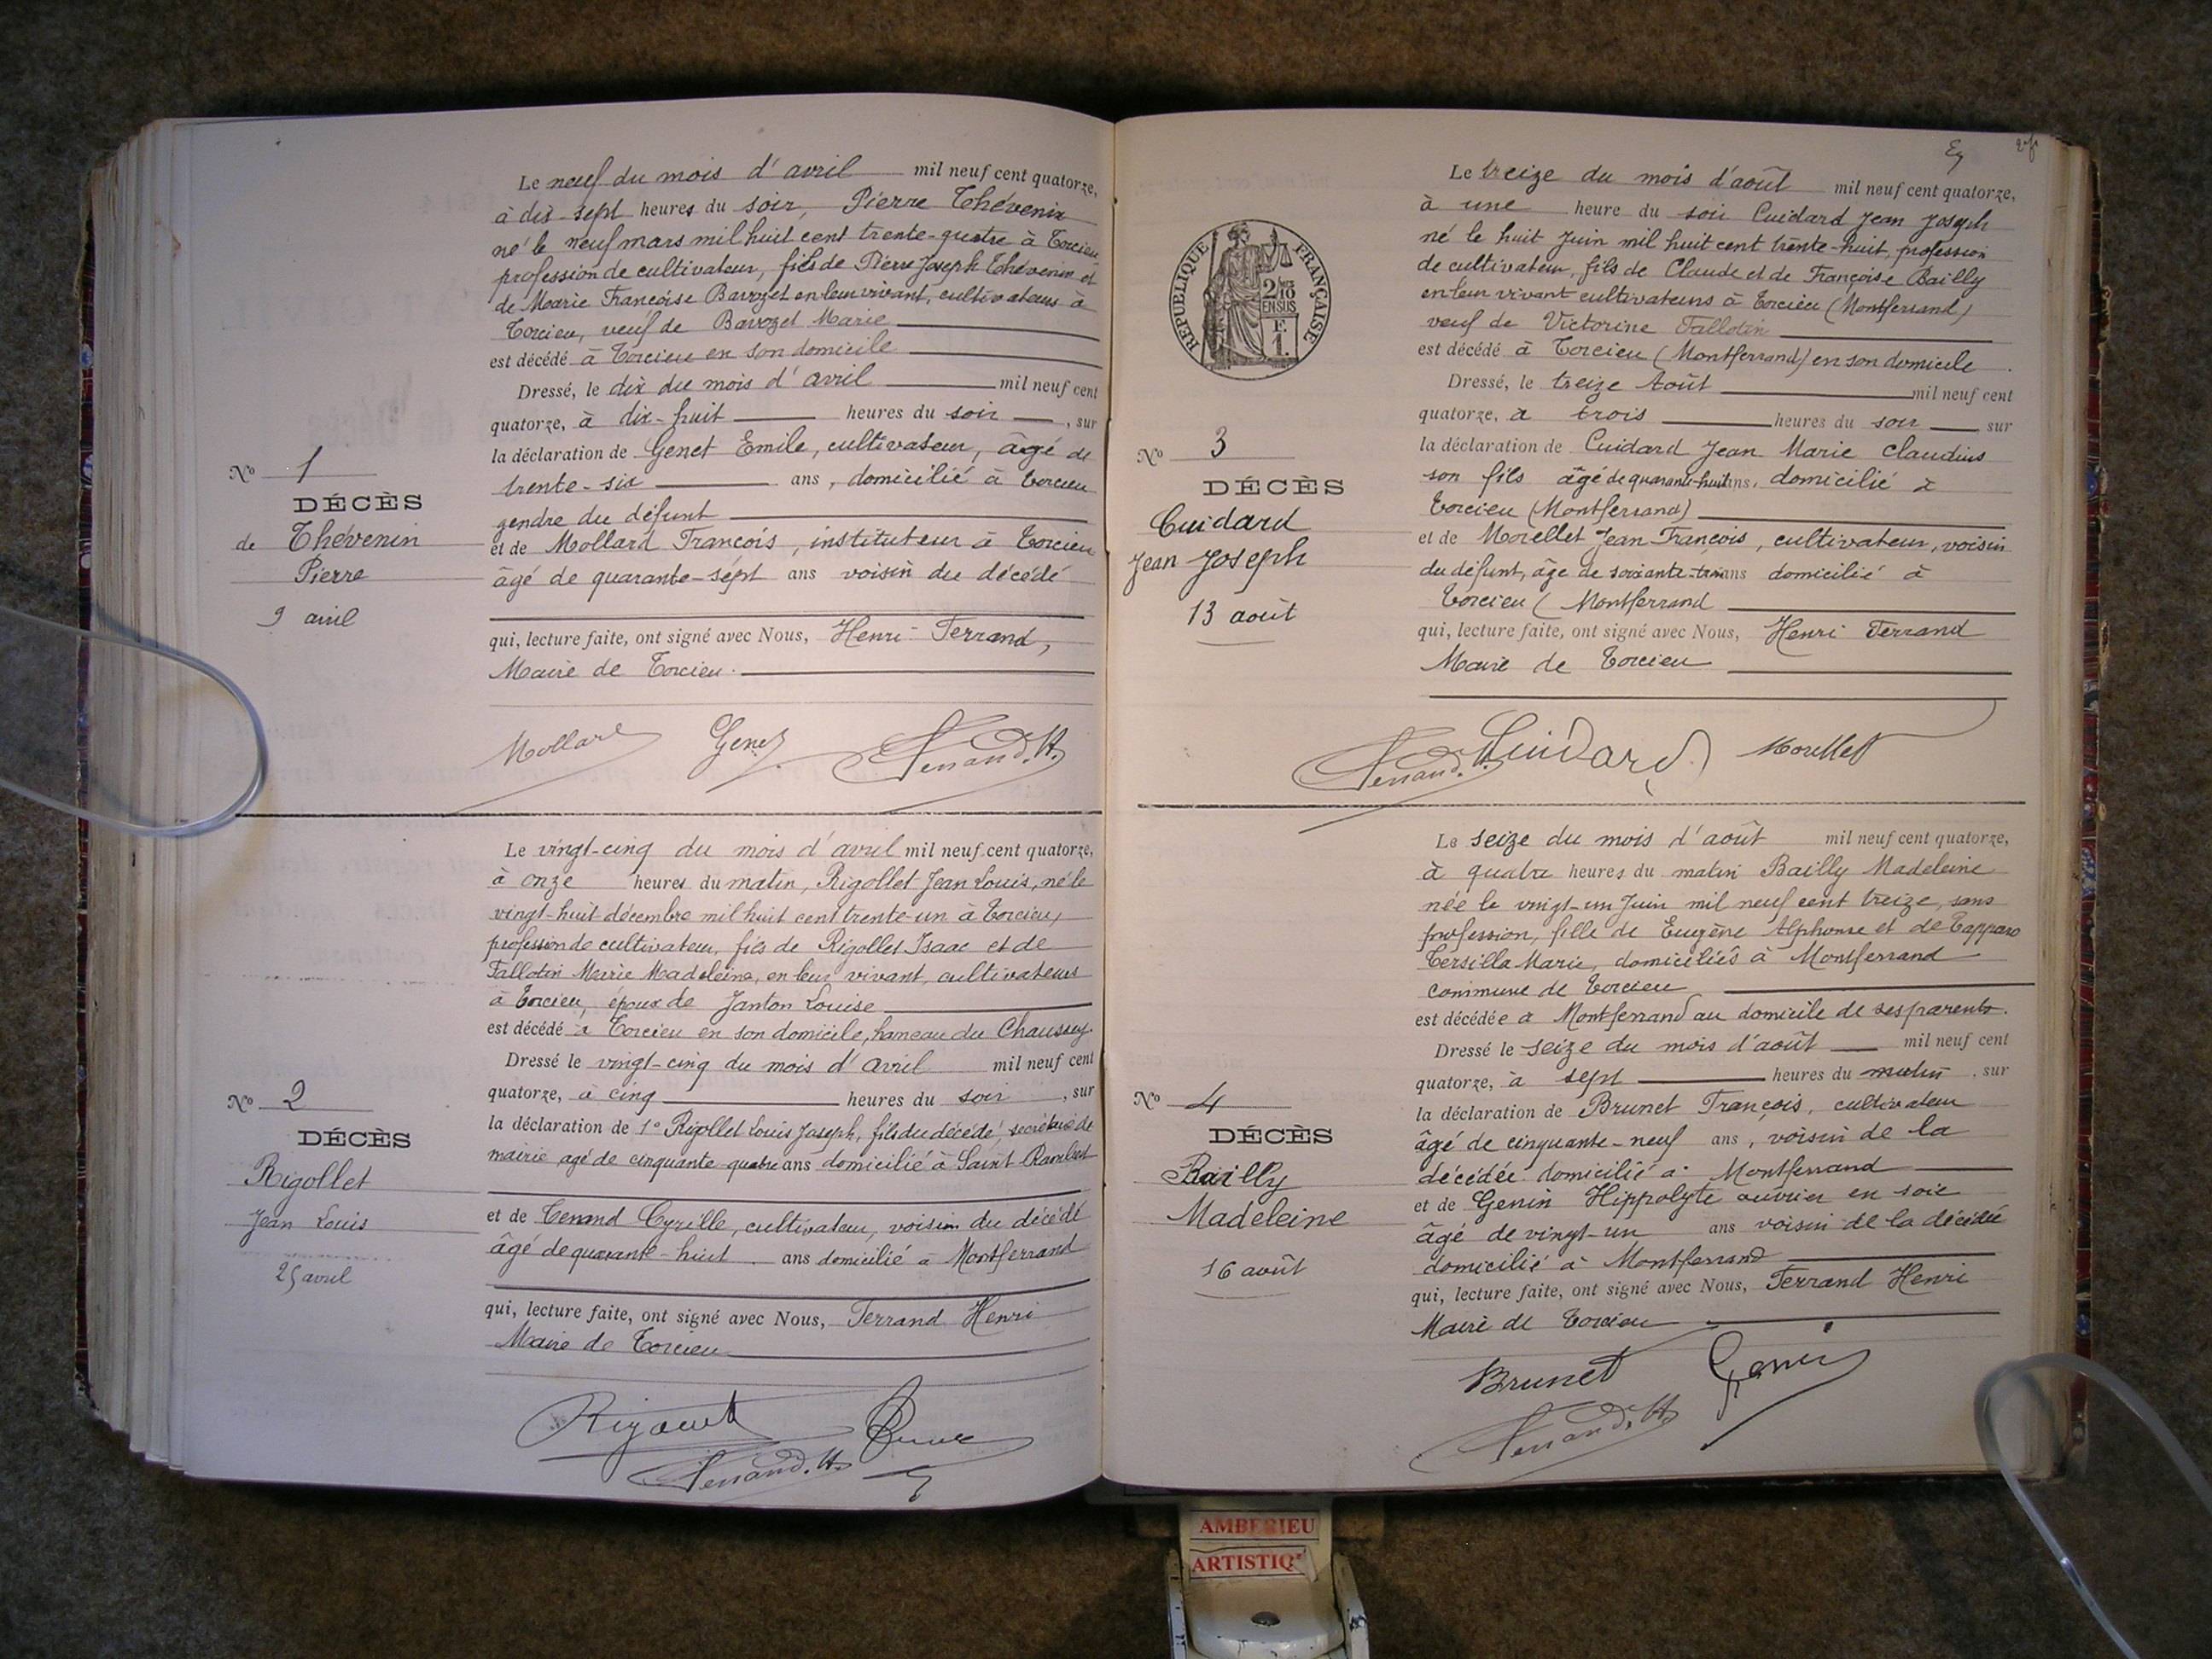 Le neuf du mois d'avril mil neuf cent quatorze,
à dix-sept heures du soir, Pierre Thévenin
né le neuf mars mil huit cent trente-quatre à Torcieu
profession de cultivateur, fils de Pierre Joseph Thévenin et
de Marie Françoise Bavozet en leur vivant, cultivateurs à
Torcieu, veuf de Bavozet Marie
est décédé à Torcieu en son domicile
Dressé, le dix du mois d'avril mil neuf cent
quatorze, à dix-huit heures du soir, sur
la déclaration de Genet Emile, cultivateur, âgé de
trente-six ans, domicilié à Torcieu
gendre du défunt
et de Mollard François, instituteur à Torcieu
âgé de quarante-sept ans voisin du décédé
qui, lecture faite, ont signé avec Nous, Henri Ferrand,
Maire de Torcieu.
No 1
DÉCÈS
de Thévenin
Pierre
9 avril
Mollard Genet Ferrand. H.
Le vingt-cinq du mois d'avril mil neuf cent quatorze,
à onze heures du matin, Rigollet Jean Louis, né le
vingt-huit décembre mil huit cent trente-un à Torcieu,
profession de cultivateur, fils de Rigollet Isaac et de
Fallotin Marie Madeleine, en leur vivant, cultivateurs
à Torcieu, époux de Janton Louise
est décédé à Torcieu en son domicile, hameau du Chaussey.
Dressé le vingt-cinq du mois d'avril mil neuf cent
quatorze, à cinq heures du soir, sur
la déclaration de 1o Rigollet Louis Joseph, fils du décédé, secrétaire de
mairie, agé de cinquante-quatre ans domicilié à Saint-Rambert
et de Tenand Cyrille, cultivateur, voisin du décédé
âgé de quarante-huit ans domicilié à Montferrand
qui, lecture faite, ont signé avec Nous, Ferrand Henri
Maire de Torcieu
No 2
DÉCÈS
Rigollet
Jean Louis
25 avril
Ferrand. H.
Le treize du mois d'août mil neuf cent quatorze,
à une heure du soir Cuidard Jean Joseph
né le huit Juin mil huit cent trente-huit, profession
de cultivateur, fils de Claude et de Françoise Bailly
en leur vivant cultivateurs à Torcieu (Montferrand)
veuf de Victorine Fallotin
est décédé à Torcieu (Montferrand) en son domicile.
Dressé, le treize Août mil neuf cent
quatorze, à trois heures du soir sur
la déclaration de Cuidard Jean Marie Claudius
son fils âgé de quarante-huit ans, domicilié à
Torcieu (Montferrand)
et de Morellet Jean-François, cultivateur, voisin
du défunt, âge de soixante-trois ans domicilié à
Torcieu (Montferrand
qui, lecture faite, ont signé avec Nous, Henri Ferrand
Maire de Torcieu
RÉPUBLIQUE FRANÇAISE
2/10
EN SUS
F.
1.
No 3
DÉCÈS
Cuidard
Jean Joseph
13 août
Ferrand. H. Cuidard Morellet
Le seize du mois d'août mil neuf cent quatorze,
à quatre heures du matin Bailly Madeleine
née le vingt-un Juin mil neuf cent treize, sans
profession, fille de Eugène Alphonse et de Tapparo
Tersilla Marie, domiciliés à Montferrand
commune de Torcieu
est décédée à Montferrand au domicile de ses parents.
Dressé le seize du mois d'août mil neuf cent
quatorze, à sept heures du matin, sur
la déclaration de Brunet François, cultivateur
âgé de cinquante-neuf ans, voisin de la
décédée domicilié à Montferrand
et de Genin Hippolyte ouvrier en soie
âgé de vingt-un ans voisin de la décédée
domicilié à Montferrand
qui, lecture faite, ont signé avec Nous, Ferrand Henri
Maire de Torcieu
No 4
DÉCÈS
Bailly
Madeleine
16 août
Brunet Genin
Ferrand. H.
AMBERIEU
ARTISTIQ